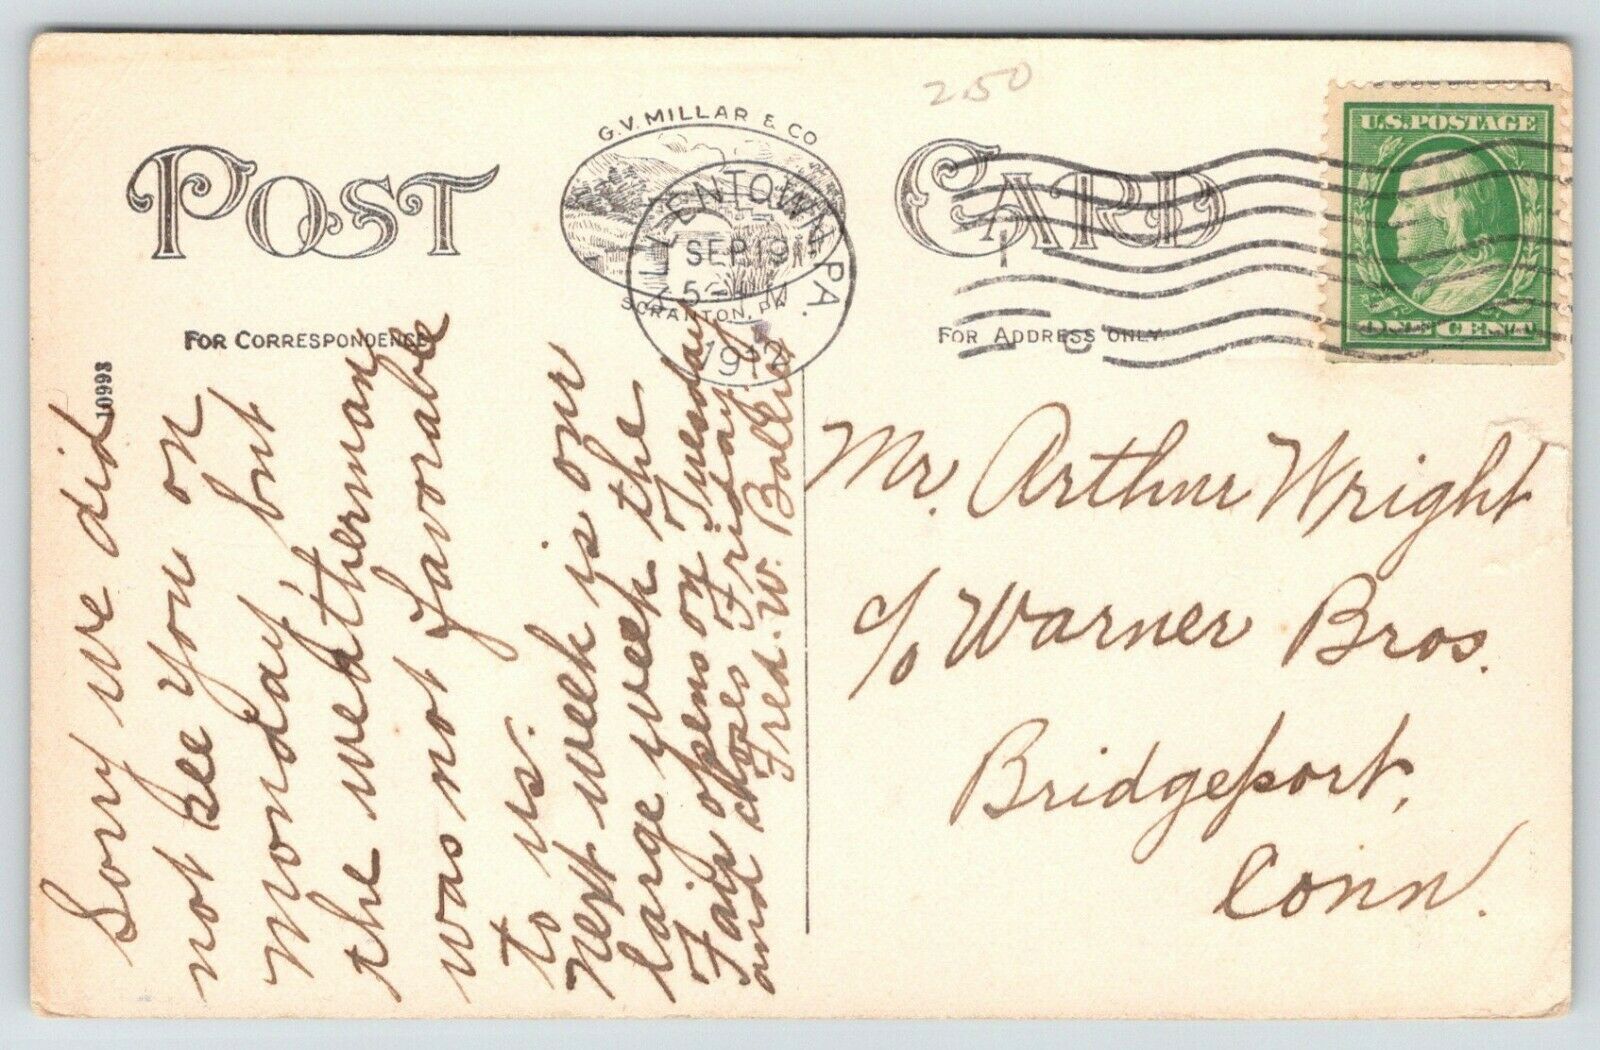 250
G.V. MILLAR & CO
POST CARD
U.S. POSTAGE
ALLENTOWN, PA.
SEP 19
5 - PM
1912
SCRANTON, PA
FOR CORRESPONDENCE
FOR ADDRESS ONLY.
10993
Sorry we did
not see you on
Monday, but
the weatherman
was not favorable
to us.
Next week is our
large week the
Fair opens on Tuesday
and closes Friday.
Fred. W. Balliet
Mr. Arthur Wright
c/o Warner Bros.
Bridgeport,
Conn.